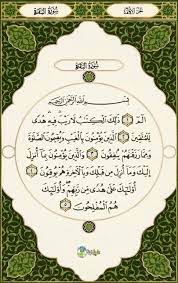 سُورَةُ البَقَرَةِ
بِسْمِ اللَّهِ الرَّحْمَٰنِ الرَّحِيمِ
الٓمٓ ١ ذَٰلِكَ الْكِتَابُ لَا رَيْبَ فِيهِ هُدًى
لِّلْمُتَّقِينَ ٢ الَّذِينَ يُؤْمِنُونَ بِالْغَيْبِ وَيُقِيمُونَ الصَّلَاةَ
وَمِمَّا رَزَقْنَاهُمْ يُنفِقُونَ ٣ وَالَّذِينَ يُؤْمِنُونَ بِمَا أُنزِلَ
إِلَيْكَ وَمَا أُنزِلَ مِن قَبْلِكَ وَبِالْآخِرَةِ هُمْ يُوقِنُونَ ٤
أُولَٰئِكَ عَلَىٰ هُدًى مِّن رَّبِّهِمْ وَأُولَٰئِكَ
هُمُ الْمُفْلِحُونَ ٥